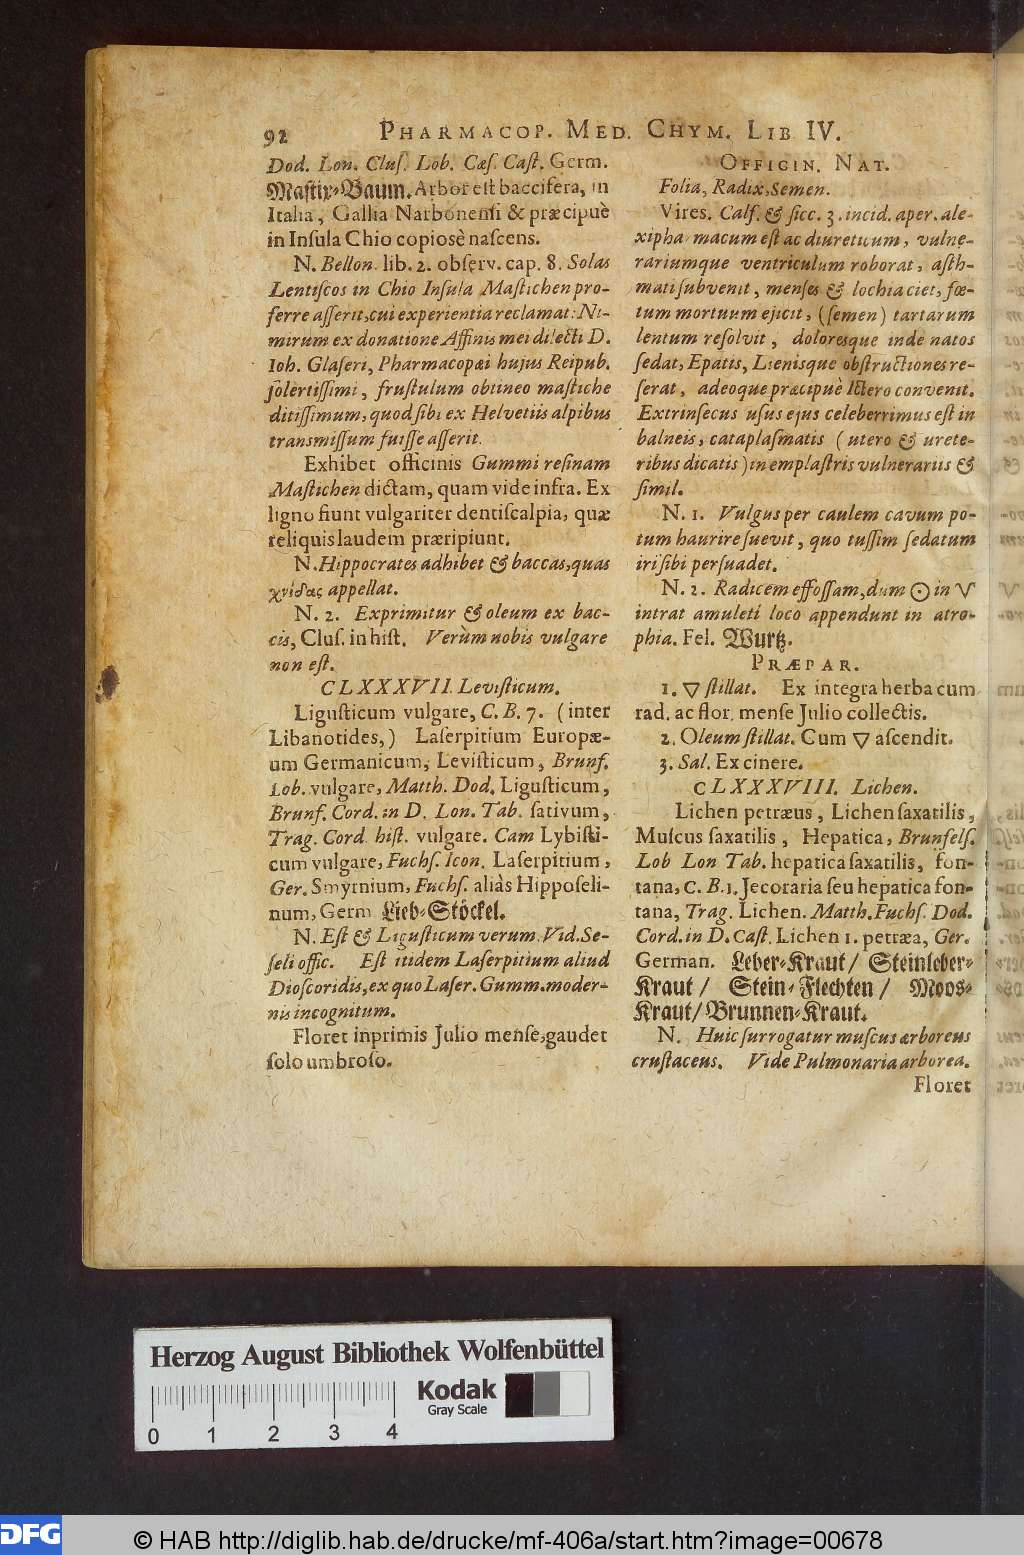 92 PHARMACOP. MED. CHYM. LIB IV.
Dod. Lon. Cluſ. Lob. Cæſ. Caſt. Germ.
Maſtix-Baum. Arbor eſt baccifera, in
Italia, Gallia Narbonenſi & præcipuè
in Inſula Chio copiosè naſcens.
N. Bellon. lib. 2. obſerv. cap. 8. Solas
Lentiſcos in Chio Inſula Maſtichen pro-
ferre aſſerit, cui experientia reclamat: Ni-
mirum ex donatione Affinis mei dilecti D.
Ioh. Glaſeri, Pharmacopæi hujus Reipub.
ſolertiſſimi, fruſtulum obtineo maſtiche
ditiſſimum, quod ſibi ex Helvetiis alpibus
transmiſſum fuiſſe aſſerit.
Exhibet officinis Gummi reſinam
Maſtichen dictam, quam vide infra. Ex
ligno fiunt vulgariter dentiſcalpia, quæ
reliquis laudem præripiunt.
N. Hippocrates adhibet & baccas, quas
χνίδας appellat.
N. 2. Exprimitur & oleum ex bac-
cis, Cluſ. in hiſt. Verùm nobis vulgare
non eſt.
CLXXXVII. Leviſticum.
Liguſticum vulgare, C. B. 7. (inter
Libanotides,) Laſerpitium Europæ-
um Germanicum, Leviſticum, Brunf.
Lob. vulgare, Matth. Dod. Liguſticum,
Brunf. Cord. in D. Lon. Tab. ſativum,
Trag. Cord. hiſt. vulgare. Cam Lybiſti-
cum vulgare, Fuchſ. Icon. Laſerpitium,
Ger. Smyrnium, Fuchſ. aliàs Hippoſeli-
num, Germ Lieb-Stöckel.
N. Eſt & Liguſticum verum. Vid. Se-
ſeli offic. Eſt itidem Laſerpitium aliud
Dioſcoridis, ex quo Laſer. Gumm. moder-
nis incognitum.
Floret inprimis Julio menſe, gaudet
ſolo umbroſo.
OFFICIN. NAT.
Folia, Radix, Semen.
Vires. Calf. & ſicc. 3. incid. aper. ale-
xipharmacum eſt ac diureticum, vulne-
rariumque ventriculum roborat, aſth-
mati ſubvenit, menſes & lochia ciet, fœ-
tum mortuum ejicit, (ſemen) tartarum
lentum reſolvit, doloresque inde natos
ſedat, Epatis, Lienisque obſtructiones re-
ſerat, adeoque præcipuè Ictero convenit.
Extrinſecus uſus ejus celeberrimus eſt in
balneis, cataplaſmatis (utero & urete-
ribus dicatis) in emplaſtris vulnerariis &
ſimil.
N. 1. Vulgus per caulem cavum po-
tum haurire ſuevit, quo tuſſim ſedatum
iri ſibi perſuadet.
N. 2. Radicem effoſſam, dum ☉ in ♈
intrat amuleti loco appendunt in atro-
phia. Fel. Wurtz.
PRÆPAR.
1. ▽ ſtillat. Ex integra herba cum
rad. ac flor. menſe Julio collectis.
2. Oleum ſtillat. Cum ▽ aſcendit.
3. Sal. Ex cinere.
CLXXXVIII. Lichen.
Lichen petræus, Lichen ſaxatilis,
Muſcus ſaxatilis, Hepatica, Brunfelſ.
Lob Lon Tab. hepatica ſaxatilis, fon-
tana, C. B. 1. Jecoraria ſeu hepatica fon-
tana, Trag. Lichen. Matth. Fuchſ. Dod.
Cord. in D. Caſt. Lichen 1. petræa, Ger.
German. Leber-Kraut / Steinleber-
Kraut / Stein-Flechten / Moos-
Kraut / Brunnen-Kraut.
N. Huic ſurrogatur muſcus arboreus
cruſtaceus. Vide Pulmonaria arborea.
Floret
Herzog August Bibliothek Wolfenbüttel
Kodak
Gray Scale
0 1 2 3 4
DFG
© HAB http://diglib.hab.de/drucke/mf-406a/start.htm?image=00678